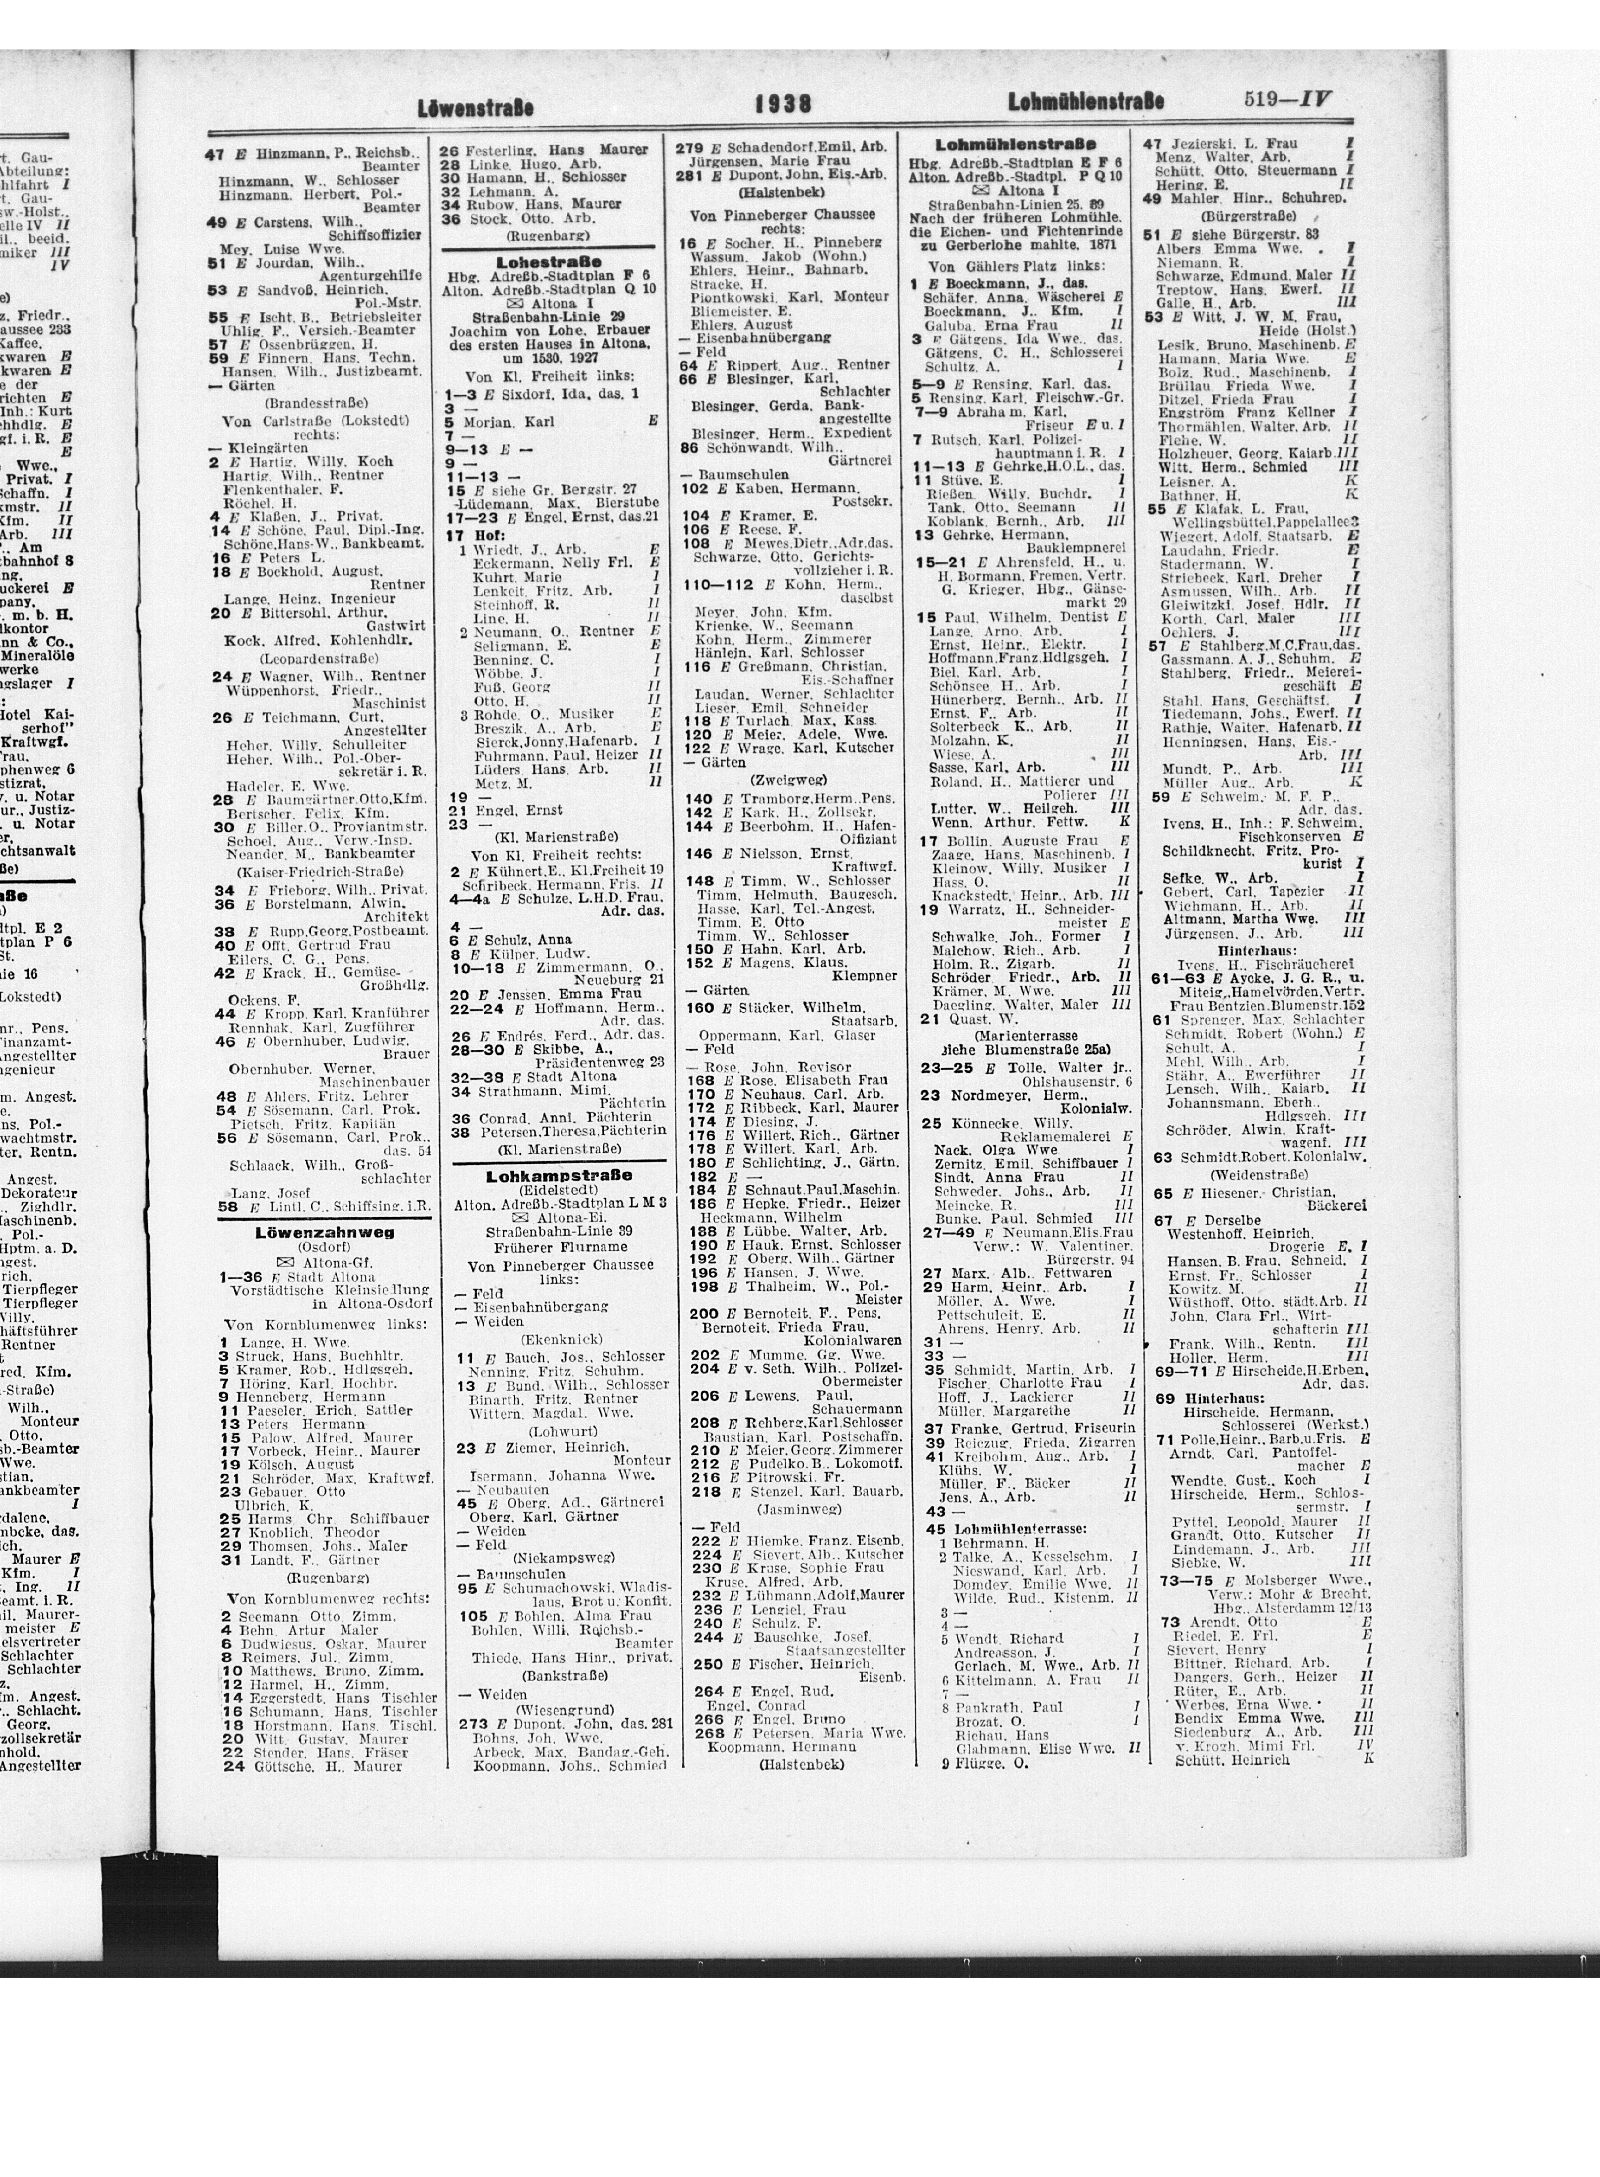 Löwenstraße
1938
Lohmühlenstraße
519—IV
47 E Hinzmann, P., Reichsb.,
Beamter
Hinzmann, W., Schlosser
Hinzmann, Herbert, Pol.-
Beamter
49 E Carstens, Wilh.,
Schiffsoffizier
Mey, Luise Wwe.
51 E Jourdan, Wilh.,
Agenturgehilfe
53 E Sandvoß, Heinrich,
Pol.-Mstr.
55 E Ischt, B., Betriebsleiter
Uhlig, F., Versich.-Beamter
57 E Ossenbrüggen, H.
59 E Finnern, Hans, Techn.
Hansen, Wilh., Justizbeamt.
— Gärten
(Brandesstraße)
Von Carlstraße (Lokstedt)
rechts:
— Kleingärten
2 E Hartig, Willy, Koch
Hartig, Wilh., Rentner
Flenkenthaler, F.
Röchel, H.
4 E Klaßen, J., Privat.
14 E Schöne, Paul, Dipl.-Ing.
Schöne, Hans-W., Bankbeamt.
16 E Peters L.
18 E Bockhold, August,
Rentner
Lange, Heinz, Ingenieur
20 E Bittersohl, Arthur,
Gastwirt
Kock, Alfred, Kohlenhdlr.
(Leopardenstraße)
24 E Wagner, Wilh., Rentner
Wüppenhorst, Friedr.,
Maschinist
26 E Teichmann, Curt,
Angestellter
Heher, Willy, Schulleiter
Heher, Wilh., Pol.-Ober-
sekretär i. R.
Hadeler, E. Wwe.
28 E Baumgärtner, Otto, Kfm.
Bertscher, Felix, Kfm.
30 E Biller, O., Proviantmstr.
Schoel, Aug., Verw.-Insp.
Neander, M., Bankbeamter
(Kaiser-Friedrich-Straße)
34 E Frieborg, Wilh., Privat.
36 E Borstelmann, Alwin,
Architekt
38 E Rupp, Georg, Postbeamt.
40 E Offt, Gertrud Frau
Eilers, C. G., Pens.
42 E Krack, H., Gemüse-
Großhdlg.
Ockens, F.
44 E Kropp, Karl, Kranführer
Rennhak, Karl, Zugführer
46 E Obernhuber, Ludwig,
Brauer
Obernhuber, Werner,
Maschinenbauer
48 E Ahlers, Fritz, Lehrer
54 E Sösemann, Carl, Prok.
Pietsch, Fritz, Kapitän
56 E Sösemann, Carl, Prok.,
das. 54
Schlaack, Wilh., Groß-
schlachter
Lang, Josef
58 E Lintl, C., Schiffsing. i. R.
Löwenzahnweg
(Osdorf)
✉ Altona-Gf.
1—36 E Stadt Altona
Vorstädtische Kleinsiedlung
in Altona-Osdorf
Von Kornblumenweg links:
1 Lange, H. Wwe.
3 Struck, Hans, Buchhltr.
5 Kramer, Rob., Hdlgsgeh.
7 Höring, Karl, Hochbr.
9 Henneberg, Hermann
11 Paeseler, Erich, Sattler
13 Peters Hermann
15 Palow, Alfred, Maurer
17 Vorbeck, Heinr., Maurer
19 Kölsch, August
21 Schröder, Max, Kraftwgf.
23 Gebauer, Otto
Ulbrich, K.
25 Harms Chr. Schiffbauer
27 Knoblich, Theodor
29 Thomsen, Johs., Maler
31 Landt, F., Gärtner
(Rugenbarg)
Von Kornblumenweg rechts:
2 Seemann Otto Zimm.
4 Behn, Artur Maler
6 Dudwiesus, Oskar, Maurer
8 Reimers, Jul., Zimm.
10 Matthews, Bruno, Zimm.
12 Harmel, H., Zimm.
14 Eggerstedt, Hans Tischler
16 Schumann, Hans, Tischler
18 Horstmann, Hans, Tischl.
20 Witt, Gustav, Maurer
22 Stender, Hans, Fräser
24 Göttsche, H., Maurer
26 Festerling, Hans Maurer
28 Linke, Hugo, Arb.
30 Hamann, H., Schlosser
32 Lehmann, A.
34 Rubow, Hans, Maurer
36 Stock, Otto, Arb.
(Rugenbarg)
Lohestraße
Hbg. Adreßb.-Stadtplan F 6
Alton. Adreßb.-Stadtplan Q 10
✉ Altona I
Straßenbahn-Linie 29
Joachim von Lohe, Erbauer
des ersten Hauses in Altona,
um 1530, 1927
Von Kl. Freiheit links:
1—3 E Sixdorf, Ida, das. 1
3 —
5 Morjan, Karl E
7 —
9—13 E —
9 —
11—13 —
15 E siehe Gr. Bergstr. 27
-Lüdemann, Max, Bierstube
17—23 E Engel, Ernst, das. 21
17 Hof:
1 Wriedt, J., Arb. E
Eckermann, Nelly Frl. E
Kuhrt, Marie I
Lenkeit, Fritz, Arb. I
Steinhoff, R. II
Line, H. II
2 Neumann, O., Rentner E
Seligmann, E. E
Benning, C. I
Wöbbe, J. I
Fuß, Georg II
Otto, H. II
3 Rohde, O., Musiker E
Breszik, A., Arb. E
Sierck, Jonny, Hafenarb. I
Fuhrmann, Paul, Heizer II
Lüders, Hans, Arb. II
Metz, M. II
19 —
21 Engel, Ernst
23 —
(Kl. Marienstraße)
Von Kl. Freiheit rechts:
2 E Kühnert, E., Kl. Freiheit 19
Schribeck, Hermann, Fris. II
4—4a E Schulze, L. H. D. Frau,
Adr. das.
4 —
6 E Schulz, Anna
8 E Külper, Ludw.
10—18 E Zimmermann, O.,
Neueburg 21
20 E Jenssen, Emma Frau
22—24 E Hoffmann, Herm.,
Adr. das.
26 E Endrés, Ferd., Adr. das.
28—30 E Skibbe, A.,
Präsidentenweg 23
32—38 E Stadt Altona
34 Strathmann, Mimi,
Pächterin
36 Conrad, Anni, Pächterin
38 Petersen, Theresa, Pächterin
(Kl. Marienstraße)
Lohkampstraße
(Eidelstedt)
Alton. Adreßb.-Stadtplan L M 3
✉ Altona-Ei.
Straßenbahn-Linie 39
Früherer Flurname
Von Pinneberger Chaussee
links:
— Feld
— Eisenbahnübergang
— Weiden
(Ekenknick)
11 E Bauch, Jos., Schlosser
Nenning, Fritz, Schuhm.
13 E Bund, Wilh., Schlosser
Binarth, Fritz, Rentner
Wittern, Magdal. Wwe.
(Lohwurt)
23 E Ziemer, Heinrich,
Monteur
Isermann, Johanna Wwe.
— Neubauten
45 E Oberg, Ad., Gärtnerei
Oberg, Karl, Gärtner
— Weiden
— Feld
(Niekampsweg)
— Baumschulen
95 E Schumachowski, Wladis-
laus, Brot u. Konfit.
105 E Bohlen, Alma Frau
Bohlen, Willi, Reichsb.-
Beamter
Thiede, Hans Hinr., privat.
(Bankstraße)
— Weiden
(Wiesengrund)
273 E Dupont, John, das. 281
Bohns, Joh. Wwe.
Arbeck, Max, Bandag.-Geh.
Koopmann, Johs., Schmied
279 E Schadendorf, Emil, Arb.
Jürgensen, Marie Frau
281 E Dupont, John, Eis.-Arb.
(Halstenbek)
Von Pinneberger Chaussee
rechts:
16 E Socher, H., Pinneberg
Wassum, Jakob (Wohn.)
Ehlers, Heinr., Bahnarb.
Stracke, H.
Piontkowski, Karl, Monteur
Bliemeister, E.
Ehlers, August
— Eisenbahnübergang
— Feld
64 E Rippert, Aug., Rentner
66 E Blesinger, Karl,
Schlachter
Blesinger, Gerda, Bank-
angestellte
Blesinger, Herm., Expedient
86 Schönwandt, Wilh.,
Gärtnerei
— Baumschulen
102 E Kaben, Hermann,
Postsekr.
104 E Kramer, E.
106 E Reese, F.
108 E Mewes, Dietr., Adr. das.
Schwarze, Otto, Gerichts-
vollzieher i. R.
110—112 E Kohn, Herm.,
daselbst
Meyer, John, Kfm.
Krienke, W., Seemann
Kohn, Herm., Zimmerer
Hänlein, Karl, Schlosser
116 E Greßmann, Christian,
Eis.-Schaffner
Laudan, Werner, Schlachter
Lieser, Emil, Schneider
118 E Turlach, Max, Kass.
120 E Meier, Adele, Wwe.
122 E Wrage, Karl, Kutscher
— Gärten
(Zweigweg)
140 E Tramborg, Herm., Pens.
142 E Kark, H., Zollsekr.
144 E Beerbohm, H., Hafen-
Offiziant
146 E Nielsson, Ernst,
Kraftwgf.
148 E Timm, W., Schlosser
Timm, Helmuth, Baugesch.
Hasse, Karl, Tel.-Angest.
Timm, E. Otto
Timm, W., Schlosser
150 E Hahn, Karl, Arb.
152 E Magens, Klaus,
Klempner
— Gärten
160 E Stäcker, Wilhelm,
Staatsarb.
Oppermann, Karl, Glaser
— Feld
— Rose, John, Revisor
168 E Rose, Elisabeth Frau
170 E Neuhaus, Carl, Arb.
172 E Ribbeck, Karl, Maurer
174 E Diesing, J.
176 E Willert, Rich., Gärtner
178 E Willert, Karl, Arb.
180 E Schlichting, J., Gärtn.
182 E —
184 E Schnaut, Paul, Maschin.
186 E Hepke, Friedr., Heizer
Heckmann, Wilhelm
188 E Lübbe, Walter, Arb.
190 E Hauk, Ernst, Schlosser
192 E Oberg, Wilh., Gärtner
196 E Hansen, J. Wwe.
198 E Thalheim, W., Pol.-
Meister
200 E Bernoteit, F., Pens.
Bernoteit, Frieda Frau,
Kolonialwaren
202 E Mumme, Gg. Wwe.
204 E v. Seth, Wilh., Polizei-
Obermeister
206 E Lewens, Paul,
Schauermann
208 E Rehberg, Karl, Schlosser
Baustian, Karl, Postschaffn.
210 E Meier, Georg, Zimmerer
212 E Pudelko, B., Lokomotf.
216 E Pitrowski, Fr.
218 E Stenzel, Karl, Bauarb.
(Jasminweg)
— Feld
222 E Hiemke, Franz, Eisenb.
224 E Sievert, Alb., Kutscher
230 E Kruse, Sophie Frau
Kruse, Alfred, Arb.
232 E Lühmann, Adolf, Maurer
236 E Lengiel, Frau
240 E Schulz, F.
244 E Bauschke, Josef,
Staatsangestellter
250 E Fischer, Heinrich,
Eisenb.
264 E Engel, Rud.
Engel, Conrad
266 E Engel, Bruno
268 E Petersen, Maria Wwe.
Koopmann, Hermann
(Halstenbek)
Lohmühlenstraße
Hbg. Adreßb.-Stadtplan E F 6
Alton. Adreßb.-Stadtpl. P Q 10
✉ Altona I
Straßenbahn-Linien 25, 89
Nach der früheren Lohmühle,
die Eichen- und Fichtenrinde
zu Gerberlohe mahlte, 1871
Von Gählers Platz links:
1 E Boeckmann, J., das.
Schäfer, Anna, Wäscherei E
Boeckmann, J., Kfm. I
Galuba, Erna Frau II
3 E Gätgens, Ida Wwe., das.
Gätgens, C. H., Schlosserei
Schultz, A. I
5—9 E Rensing, Karl, das.
5 Rensing, Karl, Fleischw.-Gr.
7—9 Abraham, Karl,
Friseur E u. I
7 Rutsch, Karl, Polizei-
hauptmann i. R. I
11—13 E Gehrke, H. O. L., das.
11 Stüve, E. I
Rießen, Willy, Buchdr. I
Tank, Otto, Seemann II
Koblank, Bernh., Arb. III
13 Gehrke, Hermann,
Bauklempnerei
15—21 E Ahrensfeld, H., u.
H. Bormann, Fremen, Vertr.
G. Krieger, Hbg., Gänse-
markt 29
15 Paul, Wilhelm, Dentist E
Lange, Arno, Arb. I
Ernst, Heinr., Elektr. I
Hoffmann, Franz, Hdlgsgeh. I
Biel, Karl, Arb. I
Schönsee H., Arb. I
Hünerberg, Bernh., Arb. II
Ernst, F., Arb. II
Solterbeck, K., Arb. II
Molzahn, K. II
Wiese, A. III
Sasse, Karl, Arb. III
Roland, H., Mattierer und
Polierer III
Lutter, W., Heilgeh. III
Wenn, Arthur, Fettw. K
17 Bollin, Auguste Frau E
Zaage, Hans, Maschinenb. I
Kleinow, Willy, Musiker I
Hass, O. II
Knackstedt, Heinr., Arb. III
19 Warratz, H., Schneider-
meister E
Schwalke, Joh., Former I
Malchow, Rich., Arb. I
Holm, R., Zigarb. II
Schröder, Friedr., Arb. II
Krämer, M. Wwe. III
Daegling, Walter, Maler III
21 Quast, W.
(Marienterrasse
siehe Blumenstraße 25a)
23—25 E Tolle, Walter jr.,
Ohlshausenstr. 6
23 Nordmeyer, Herm.,
Kolonialw.
25 Könnecke, Willy,
Reklamemalerei E
Nack, Olga Wwe I
Zernitz, Emil, Schiffbauer I
Sindt, Anna Frau II
Schweder, Johs., Arb. II
Meincke, R. III
Bunke, Paul, Schmied III
27—49 E Neumann, Elis. Frau
Verw.: W. Valentiner,
Bürgerstr. 94
27 Marx, Alb., Fettwaren
29 Harm, Heinr., Arb. I
Möller, A. Wwe. I
Pettschuleit, E. II
Ahrens, Henry, Arb. II
31 —
33 —
35 Schmidt, Martin, Arb. I
Fischer, Charlotte Frau I
Hoff, J., Lackierer II
Müller, Margarethe II
37 Franke, Gertrud, Friseurin
39 Reiczug, Frieda, Zigarren
41 Kreibohm, Aug., Arb. I
Klühs, W. I
Müller, F., Bäcker II
Jens, A., Arb. II
43 —
45 Lohmühlenterrasse:
1 Behrmann, H.
2 Talke, A., Kesselschm. I
Nieswand, Karl, Arb. I
Domdey, Emilie Wwe. II
Wilde, Rud., Kistenm. II
3 —
4 —
5 Wendt, Richard I
Andreasson, J. I
Gerlach, M. Wwe., Arb. II
6 Kittelmann, A. Frau II
7 —
8 Pankrath, Paul I
Brozat, O. I
Richau, Hans
Glahmann, Elise Wwe. II
9 Flügge, O.
47 Jezierski, L. Frau I
Menz, Walter, Arb. I
Schütt, Otto, Steuermann I
Hering, E. II
49 Mahler, Hinr., Schuhrep.
(Bürgerstraße)
51 E siehe Bürgerstr. 83
Albers Emma Wwe. I
Niemann, R. I
Schwarze, Edmund, Maler II
Treptow, Hans, Ewerf. II
Galle, H., Arb. III
53 E Witt, J. W. M. Frau,
Heide (Holst.)
Lesik, Bruno, Maschinenb. E
Hamann, Maria Wwe. E
Bolz, Rud., Maschinenb. I
Brüllau, Frieda Wwe. I
Ditzel, Frieda Frau I
Engström Franz Kellner I
Thormählen, Walter, Arb. II
Flehe, W. II
Holzheuer, Georg, Kaiarb. III
Witt, Herm., Schmied III
Leisner, A. K
Bathner, H. K
55 E Klafak, L. Frau,
Wellingsbüttel, Pappelallee 3
Wiegert, Adolf, Staatsarb. E
Laudahn, Friedr. E
Stadermann, W. I
Striebeck, Karl, Dreher I
Asmussen, Wilh., Arb. II
Gleiwitzki, Josef, Hdlr. II
Korth, Carl, Maler III
Oehlers, J. III
57 E Stahlberg, M. C. Frau, das.
Gassmann, A. J., Schuhm. E
Stahlberg, Friedr., Meierei-
geschäft E
Stahl, Hans, Geschäftsf. I
Tiedemann, Johs., Ewerf. II
Rathje, Walter, Hafenarb. II
Henningsen, Hans, Eis.-
Arb. III
Mundt, P., Arb. III
Müller Aug., Arb. K
59 E Schweim, M. F. P.,
Adr. das.
Ivens, H., Inh.: F. Schweim,
Fischkonserven E
Schildknecht, Fritz, Pro-
kurist I
Sefke, W., Arb. I
Gebert, Carl, Tapezier II
Wichmann, H., Arb. II
Altmann, Martha Wwe. III
Jürgensen, J., Arb. III
Hinterhaus:
Ivens, H., Fischräucherei
61—63 E Aycke, J. G. R., u.
Miteig., Hamelvörden, Vertr.
Frau Bentzien, Blumenstr. 152
61 Sprenger, Max, Schlachter
Schmidt, Robert (Wohn.) E
Schult, A. I
Mehl, Wilh., Arb. I
Stähr, A., Ewerführer II
Lensch, Wilh., Kaiarb. II
Johannsmann, Eberh.,
Hdlgsgeh. III
Schröder, Alwin, Kraft-
wagenf. III
63 Schmidt, Robert, Kolonialw.
(Weidenstraße)
65 E Hiesener, Christian,
Bäckerei
67 E Derselbe
Westenhoff, Heinrich,
Drogerie E, I
Hansen, B. Frau, Schneid. I
Ernst, Fr., Schlosser I
Kowitz, M. II
Wüsthoff, Otto, städt. Arb. II
John, Clara Frl., Wirt-
schafterin III
Frank, Wilh., Rentn. III
Holler, Herm. III
69—71 E Hirscheide, H. Erben,
Adr. das.
69 Hinterhaus:
Hirscheide, Hermann,
Schlosserei (Werkst.)
71 Polle, Heinr., Barb. u. Fris. E
Arndt, Carl, Pantoffel-
macher E
Wendte, Gust., Koch I
Hirscheide, Herm., Schlos-
sermstr. I
Pyttel, Leopold, Maurer II
Grandt, Otto, Kutscher II
Lindemann, J., Arb. III
Siebke, W. III
73—75 E Molsberger Wwe.,
Verw.: Mohr & Brecht,
Hbg., Alsterdamm 12/13
73 Arendt, Otto E
Riedel, E. Frl. E
Sievert, Henry I
Bittner, Richard, Arb. I
Dangers, Gerh., Heizer II
Rüter, E., Arb. II
Werbes, Erna Wwe. II
Bendix Emma Wwe. III
Siedenburg A., Arb. III
v. Krogh, Mimi Frl. IV
Schütt, Heinrich K